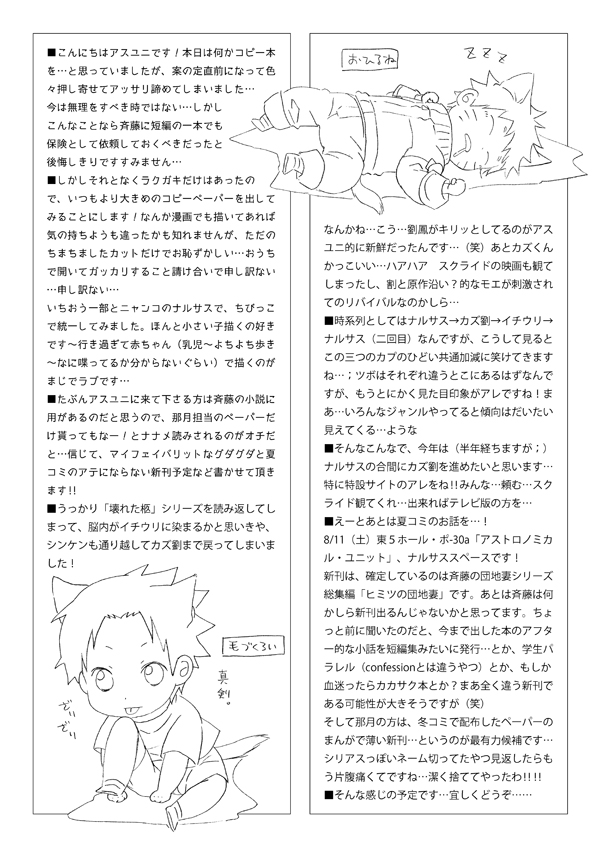 ■こんにちはアスユニです！本日は何かコピー本
を…と思っていましたが、案の定直前になって色
々押し寄せてアッサリ諦めてしまいました…
今は無理をすべき時ではない…しかし
こんなことなら斉藤に短編の一本でも
保険として依頼しておくべきだったと
後悔しきりですすみません…
■しかしそれとなくラクガキだけはあったの
で、いつもより大きめのコピーペーパーを出して
みることにします！なんか漫画でも描いてあれば
気の持ちようも違ったかも知れませんが、ただの
ちまちましたカットだけでお恥ずかしい…おうち
で開いてガッカリすること請け合いで申し訳ない
…申し訳ない…
いちおう一部とニャンコのナルサスで、ちびっこ
で統一してみました。ほんと小さい子描くの好き
です～行き過ぎて赤ちゃん（乳児～よちよち歩き
～なに喋ってるか分からないぐらい）で描くのが
まじでラブです…
■たぶんアスユニに来て下さる方は斉藤の小説に
用があるのだと思うので、那月担当のペーパーだ
け貰ってもなー！とナナメ読みされるのがオチだ
と…信じて、マイフェイバリットなグダグダと夏
コミのアテにならない新刊予定など書かせて頂き
ます!!
■うっかり「壊れた柩」シリーズを読み返してし
まって、脳内がイチウリに染まるかと思いきや、
シンケンも通り越してカズ劉まで戻ってしまいま
した！
毛づくろい
真剣。
ぞりぞり
おひるね
ZZZ
なんかね…こう…劉鳳がキリッとしてるのがアス
ユニ的に新鮮だったんです…（笑）あとカズくん
かっこいい…ハアハア　スクライドの映画も観て
しまったし、割と原作沿い？的なモエが刺激され
てのリバイバルなのかしら…
■時系列としてはナルサス→カズ劉→イチウリ→
ナルサス（二回目）なんですが、こうして見ると
この三つのカプのひどい共通加減に笑けてきます
ね…；ツボはそれぞれ違うとこにあるはずなんで
すが、もうとにかく見た目印象がアレですね！ま
あ…いろんなジャンルやってると傾向はだいたい
見えてくる…ような
■そんなこんなで、今年は（半年経ちますが；）
ナルサスの合間にカズ劉を進めたいと思います…
特に特設サイトのアレをね!!みんな…頼む…スク
ライド観てくれ…出来ればテレビ版の方を…
■えーとあとは夏コミのお話を…！
8/11（土）東５ホール・ポ-30a「アストロノミカ
ル・ユニット」、ナルサススペースです！
新刊は、確定しているのは斉藤の団地妻シリーズ
総集編「ヒミツの団地妻」です。あとは斉藤は何
かしら新刊出るんじゃないかと思ってます。ちょ
っと前に聞いたのだと、今まで出した本のアフタ
ー的な小話を短編集みたいに発行…とか、学生パ
ラレル（confessionとは違うやつ）とか、もしか
血迷ったらカカサク本とか？まあ全く違う新刊で
ある可能性が大きそうですが（笑）
そして那月の方は、冬コミで配布したペーパーの
まんがで薄い新刊…というのが最有力候補です…
シリアスっぽいネーム切ってたやつ見返したらも
う片腹痛くてですね…潔く捨ててやったわ!!!!
■そんな感じの予定です…宜しくどうぞ……